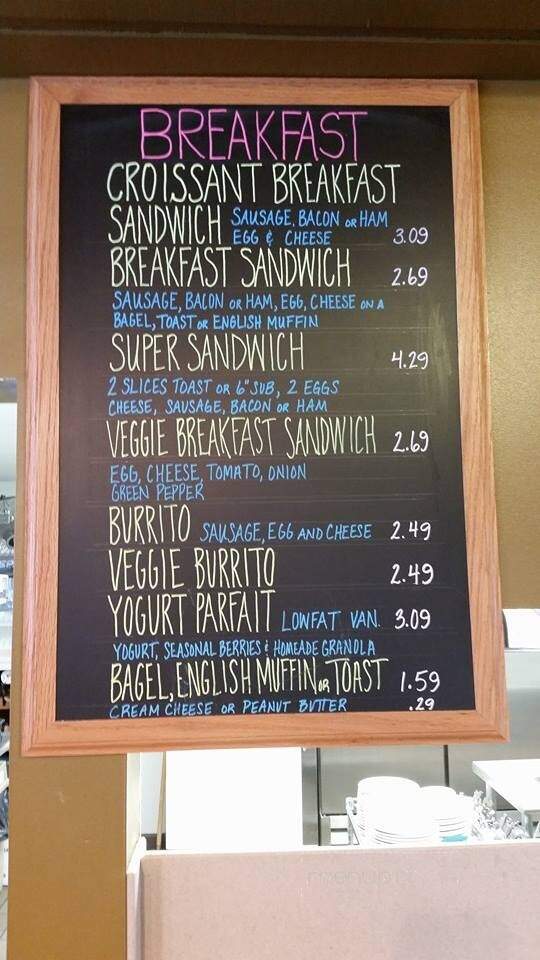 BREAKFAST
CROISSANT BREAKFAST
SANDWICH SAUSAGE, BACON OR HAM
EGG & CHEESE 3.09
BREAKFAST SANDWICH 2.69
SAUSAGE, BACON OR HAM, EGG, CHEESE ON A
BAGEL, TOAST OR ENGLISH MUFFIN
SUPER SANDWICH 4.29
2 SLICES TOAST OR 6" SUB, 2 EGGS
CHEESE, SAUSAGE, BACON OR HAM
VEGGIE BREAKFAST SANDWICH 2.69
EGG, CHEESE, TOMATO, ONION
GREEN PEPPER
BURRITO SAUSAGE, EGG AND CHEESE 2.49
VEGGIE BURRITO 2.49
YOGURT PARFAIT LOWFAT VAN. 3.09
YOGURT, SEASONAL BERRIES & HOMEADE GRANOLA
BAGEL, ENGLISH MUFFIN OR TOAST 1.59
CREAM CHEESE OR PEANUT BUTTER .29